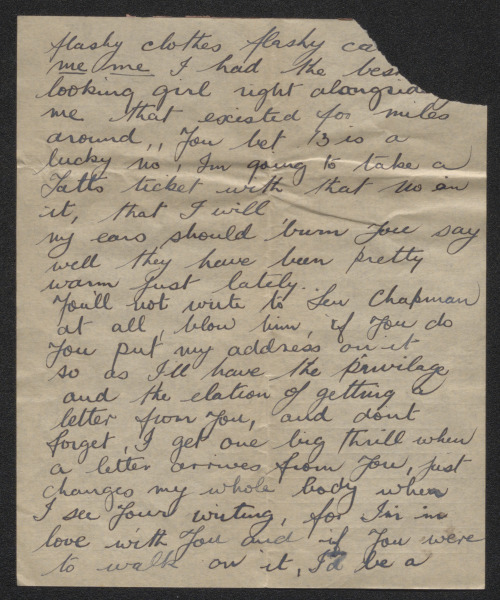 flashy clothes flashy ca
me me I had the bes
looking girl right alongside
me that existed for miles
around,, You bet 13 is a
lucky no, I'm going to take a
Tatts ticket with that no on
it, that I will
my ears should 'burn You say
well they have been pretty
warm just lately.
You'll not write to Len Chapman
at all, blow him, if You do
You put my address on it
so as I'll have the privilage
and the elation of getting a
letter from You, and don't
forget, I get one big thrill when
a letter arrives from You, just
changes my whole body when
I see Your writing, for I'm in
love with You and if You were
to walk on it, I'd be a